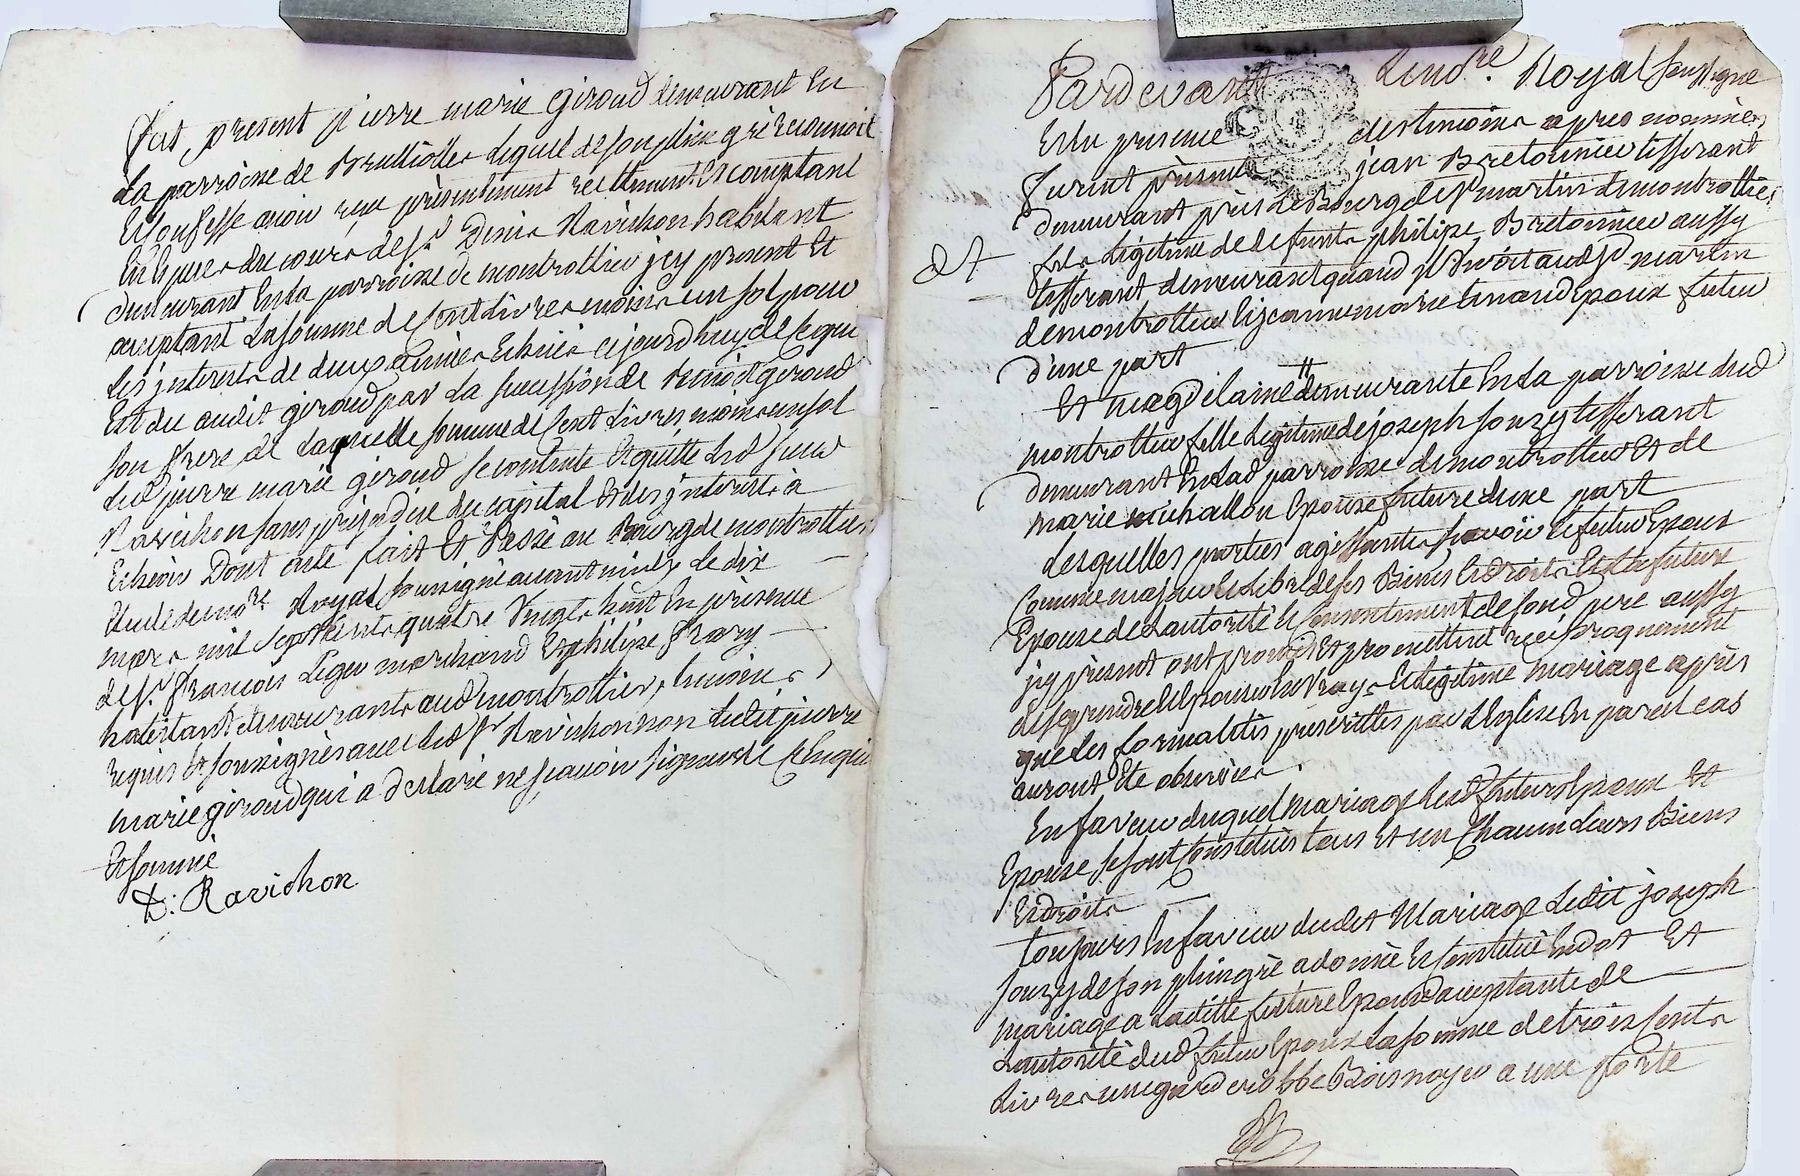 fut present pierre marie giroud demeurant En
La parroisse de Brullioles lequel de son plein gré reconnoit
Et confesse avoir reçu présentement reellement Et comptant
En Especes du cours de sr Denis Ravichon habitant
demeurant En la parroisse de montrottier jcy present Et
acceptant La somme de Cent Livres moins un sol pour
Les jnterents de deux années Echües ce jourd'huy de Ce qui
Est du audit giroud par La succession de Benoit giroud
son frere de Laquelle somme de Cent Livres moins un sol
Led pierre marie giroud se contente Et quitte led sieur
Ravichon sans prejudice du capital Et des jnterents a
Echeoir Dont acte fait Et Passé au Bourg de montrottier
Etude du nore Royal soussigné avant midy Le dix
mars mil sept Cents quatre Vingt huit En présence
de sr François Leger marchand Et philipe Thary
habitants demeurants aud montrottier, temoins
requis Et soussignés avec led sr Ravichon non Ledit pierre
marie giroud qui a declaré ne scavoir signer de Ce Enquis
Et sommé
D: Ravichon
Pardevant Le nore Royal soussigné
Et En presence des temoins apres nommés
furent présents jean Bretonnier tisserant
demeurant près Le Bourg de st martin de montrottier
fils Légitime de defunts philipe Bretonnier aussy
tisserant demeurant quand il Vivoit aud st martin
de montrottier Et jeanne marie Epoux futur
d'une part
Et magdelaine demeurante En La parroisse dud
montrottier fille Legitime de joseph Souzy tisserant
demeurant En Lad parroisse de montrottier Et de
marie michallon Epouse future d'une part
Lesquelles parties agissantes sçavoir Le futur Epoux
Comme majeur Et Libre de ses Biens Et Droits Et La future
Epouse de L'autorité Et Consentement de sond pere aussy
jcy présent ont promis Et promettent réciproquement
de se prendre Et Epouser En Vray Et Légitime mariage après
que Les formalités préscrittes par L'Eglise En pareil cas
auront Eté observées.
En faveur duquel mariage Lesd futurs Epoux Et
Epouse se sont Constitués tous Et un Chacun Leurs Biens
Et droits
toujours En faveur dudit Mariage Ledit joseph
Souzy de son plein gré a donné Et Constitué En dot Et
mariage a Laditte future Epouse acceptante de
L'autorité dud futur Epoux La somme de trois Cents
Livres un garderobbe Bois noyer a une porte